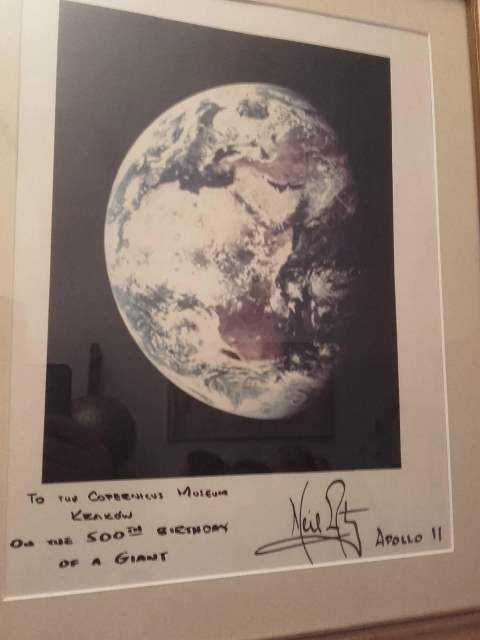 To the Copernicus Museum
Krakow
On the 500th birthday
of a Giant
Neil Armstrong
Apollo 11